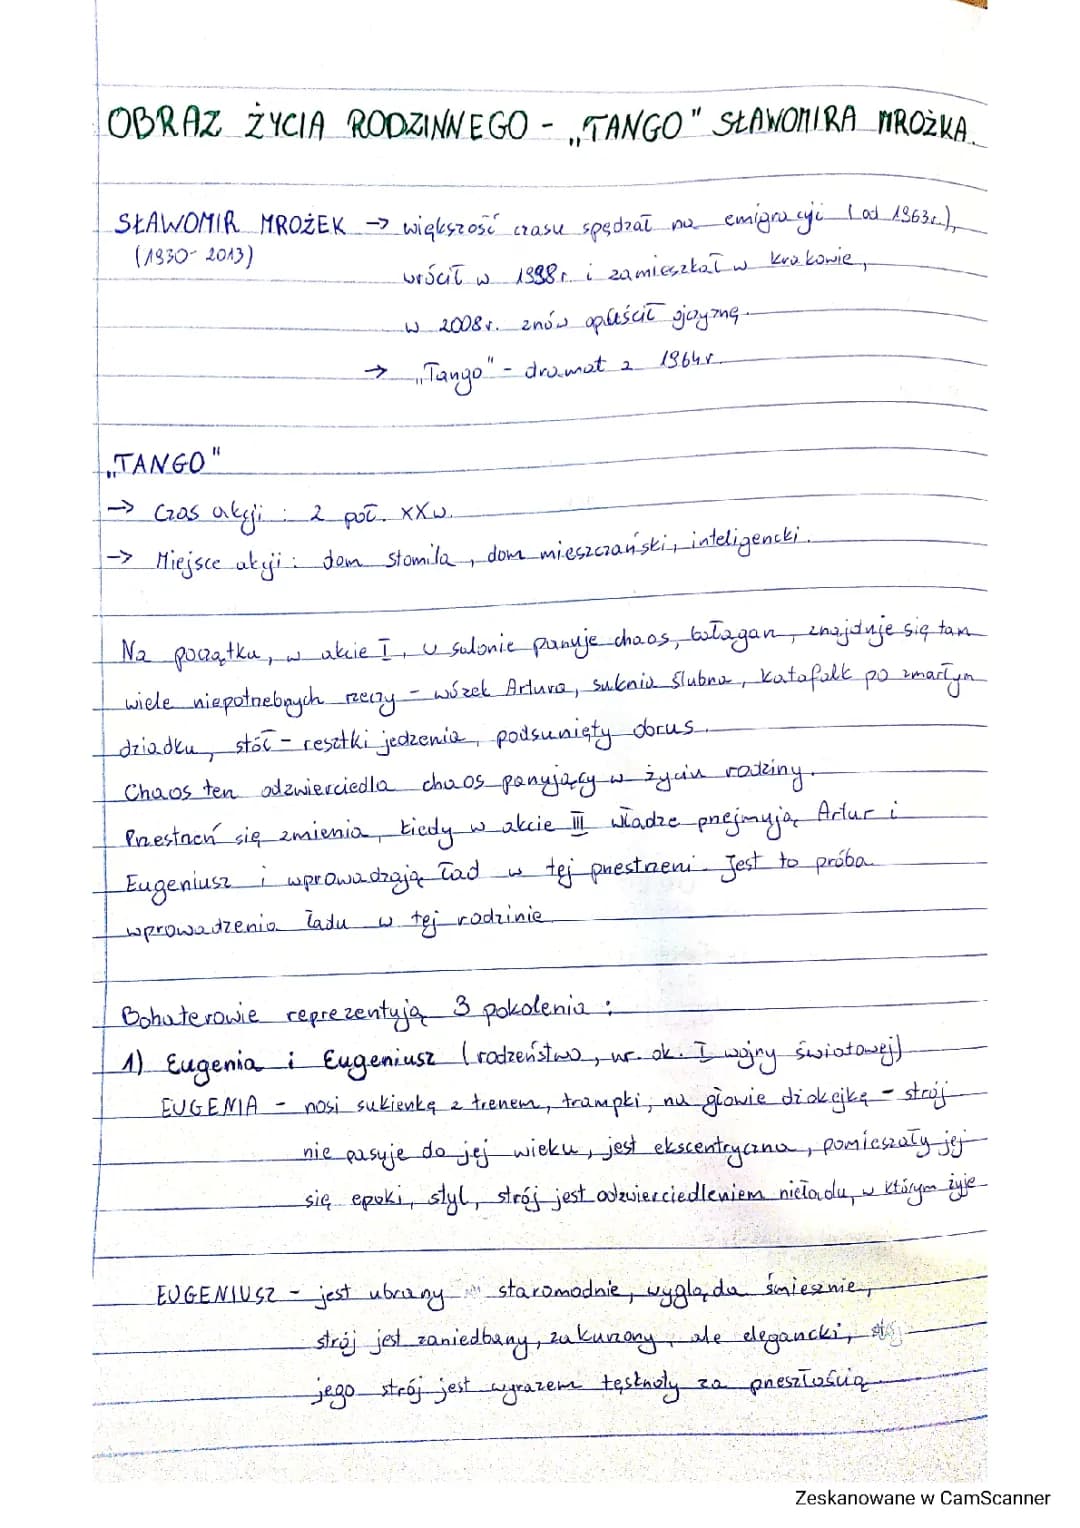 OBRAZ ŻYCIA RODZINNEGO - „TANGO" SŁAWOMIRA MROŻKA.
SŁAWOMIR MROŻEK → większość czasu spędzał na emigracji (od 1963r.),
(1930-2013)
wrócił w 1998r. i zamieszkał w Krakowie,
w 2008r. znów opuścił ojczyznę.
→ „Tango" - dramat z 1964r.
„TANGO"
→ Czas akcji: 2 poł. XXw.
→ Miejsce akcji: dom Stomila, dom mieszczański, inteligencki.
Na początku, w akcie I, w salonie panuje chaos, bałagan, znajduje się tam
wiele niepotrzebnych rzeczy - wózek Artura, suknia ślubna, katafalk po zmarłym
dziadku, stół - resztki jedzenia, podsunięty obrus.
Chaos ten odzwierciedla chaos panujący w życiu rodziny.
Przestrzeń się zmienia, kiedy w akcie III władze przejmują Artur i
Eugeniusz i wprowadzają ład w tej przestrzeni. Jest to próba
wprowadzenia ładu w tej rodzinie.
Bohaterowie reprezentują 3 pokolenia:
1) Eugenia i Eugeniusz (rodzeństwo, ur. ok. I wojny światowej)
EUGENIA - nosi sukienkę z trenem, trampki, na głowie dżokejkę - strój
nie pasuje do jej wieku, jest ekscentryczna, pomieszały jej
się epoki, styl, strój jest odzwierciedleniem nieładu, w którym żyje
EUGENIUSZ - jest ubrany staromodnie, wygląda śmiesznie,
strój jest zaniedbany, zakurzony, ale elegancki,
jego strój jest wyrazem tęsknoty za przeszłością
Zeskanowane w CamScanner